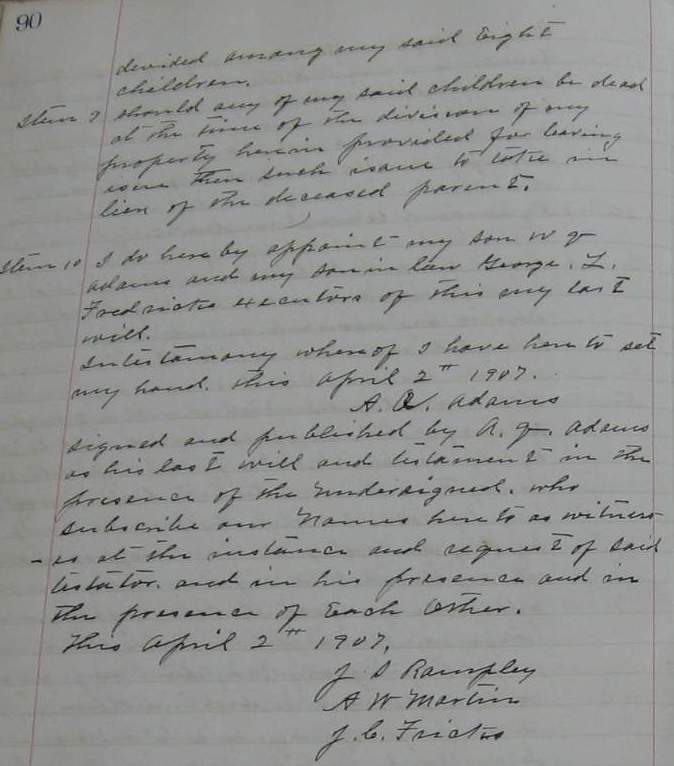 90
divided among my said Eight
children.
Item 9 should any of my said children be dead
at the time of the division of my
property herein provided for leaving
issue then such issue to take in
lieu of the deceased parent.
Item 10 I do here by appoint my son W
Adams and my son in law George. L.
Fredricks executors of this my last
will.
In testamony where of I have here to set
my hand. this April 2" 1907.
A. Adams
signed and published by A. Adams
as his last will and testament in the
presence of the undersigned. who
subscribe our Names here to as witness
- es at the instance and request of said
testator. and in his presence and in
the presence of Each Other.
this April 2" 1907.
J. S Rampley
A W Martin
J. C.